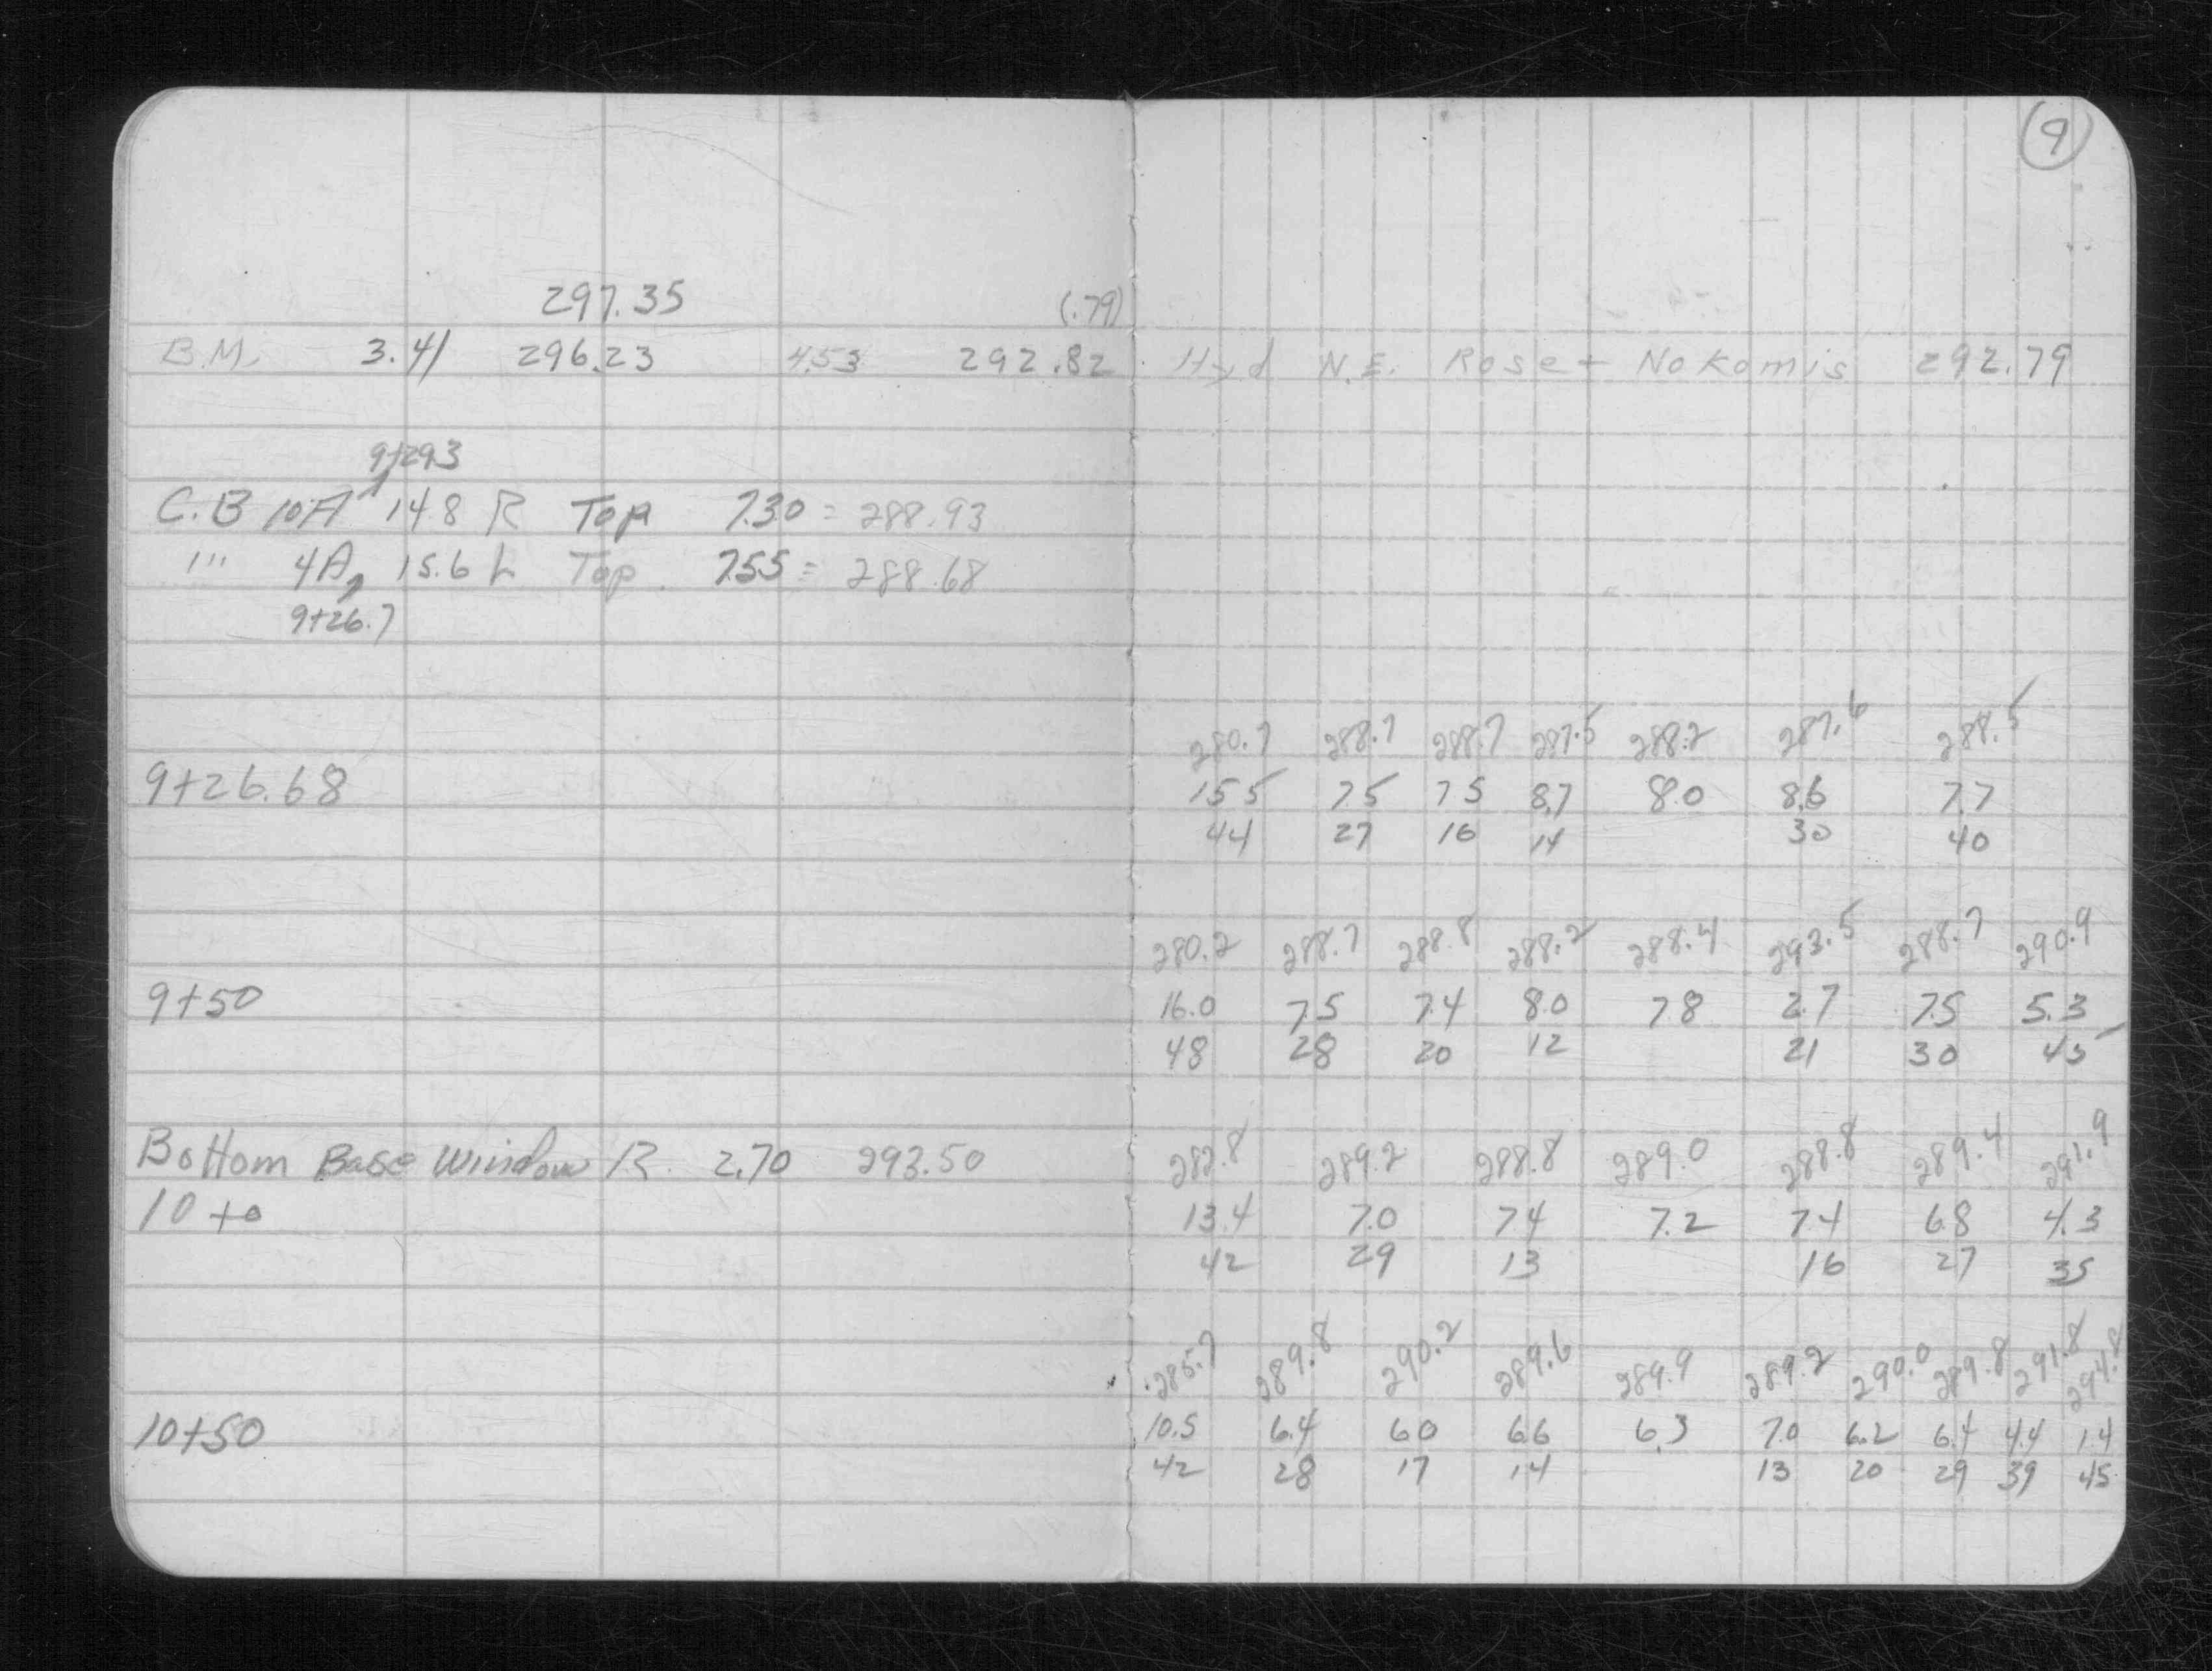 9
297.35 (.79)
B.M. 3.41 296.23 4.53 292.82 Hyd N.E. Rose + Nokomis 292.79
9+29.3
C.B 10A 14.8 R Top 7.30 = 288.93
" 4A, 15.6 L Top 7.55 = 288.68
9+26.7
280.7 288.7 288.7 287.5 288.2 287.6 288.5
9+26.68 15.5 7.5 7.5 8.7 8.0 8.6 7.7
44 27 16 14 30 40
280.2 288.7 288.8 288.2 288.4 293.5 288.7 290.9
9+50 16.0 7.5 7.4 8.0 7.8 2.7 7.5 5.3
48 28 20 12 21 30 45
Bottom Base Window R. 2.70 293.50 282.8 289.2 288.8 289.0 288.8 289.4 291.9
10+0 13.4 7.0 7.4 7.2 7.4 6.8 4.3
42 29 13 16 27 35
285.7 289.8 290.2 289.6 289.9 289.2 290.0 289.8 291.8 294.8
10+50 10.5 6.4 6.0 6.6 6.3 7.0 6.2 6.4 4.4 1.4
42 28 17 14 13 20 29 39 45